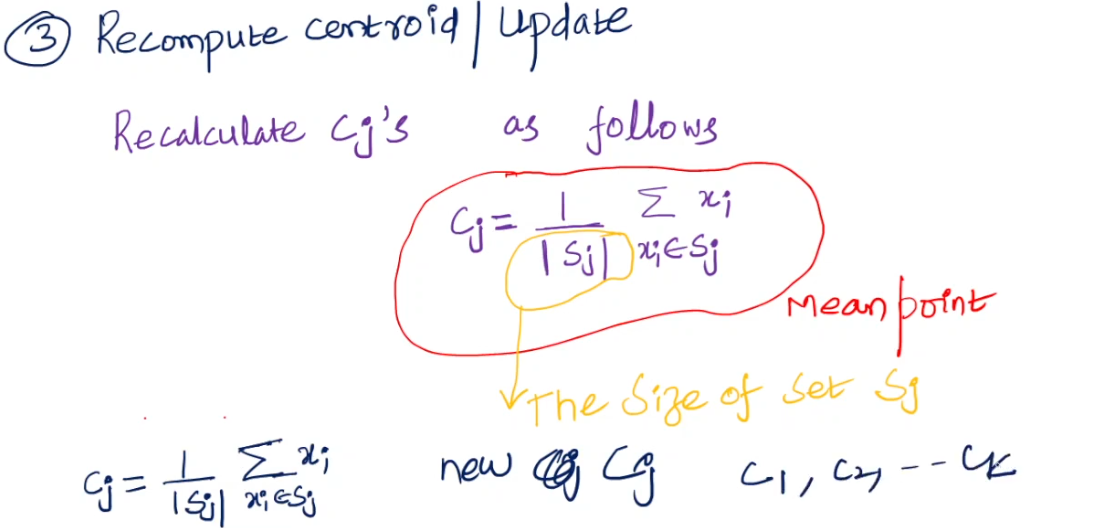 ③ Recompute centroid | Update
Recalculate Cj's as follows
Cj = 1/|Sj| Σ xi∈Sj xi
Mean point
The Size of set Sj
Cj = 1/|Sj| Σ xi∈Sj xi new Cj C1, C2, -- Ck